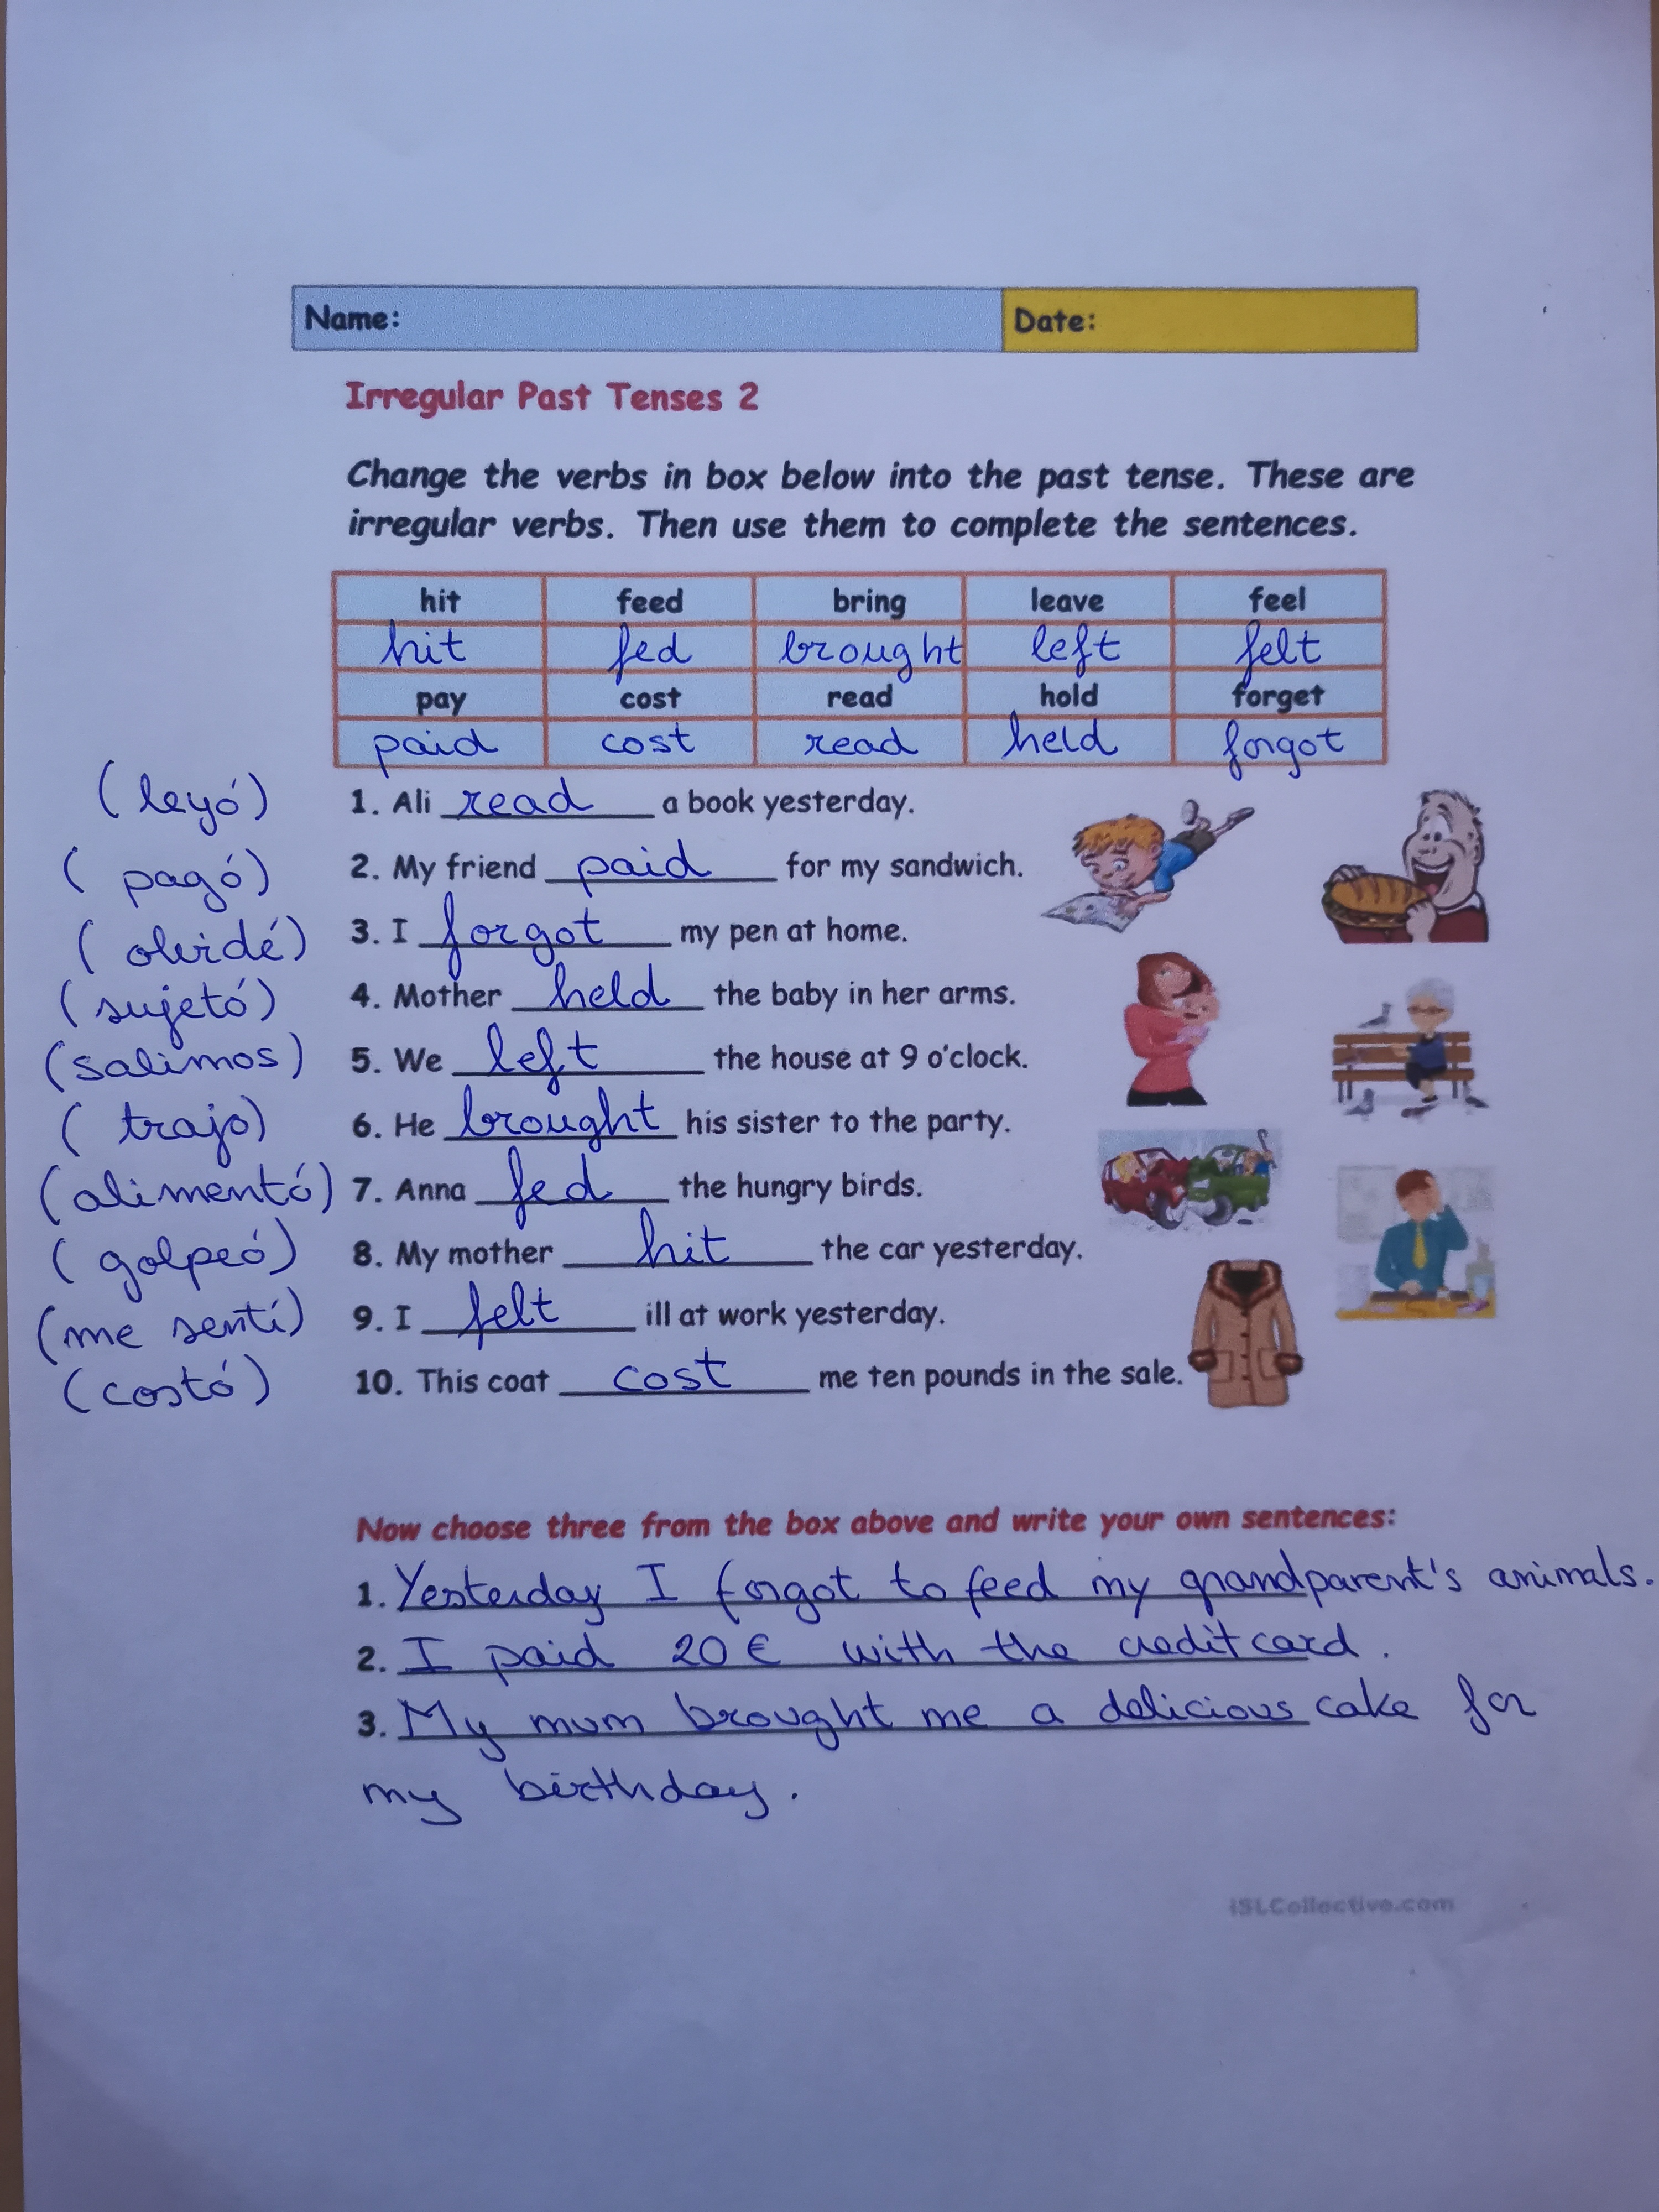 Name: Date:
Irregular Past Tenses 2
Change the verbs in box below into the past tense. These are
irregular verbs. Then use them to complete the sentences.
hit feed bring leave feel
hit fed brought left felt
pay cost read hold forget
paid cost read held forgot
(leyó) 1. Ali read a book yesterday.
(pagó) 2. My friend paid for my sandwich.
(olvidé) 3. I forgot my pen at home.
(sujetó) 4. Mother held the baby in her arms.
(salimos) 5. We left the house at 9 o'clock.
(trajo) 6. He brought his sister to the party.
(alimentó) 7. Anna fed the hungry birds.
(golpeó) 8. My mother hit the car yesterday.
(me sentí) 9. I felt ill at work yesterday.
(costó) 10. This coat cost me ten pounds in the sale.
Now choose three from the box above and write your own sentences:
1. Yesterday I forgot to feed my grandparent's animals.
2. I paid 20 € with the credit card.
3. My mum brought me a delicious cake for
my birthday.
iSLCollective.com